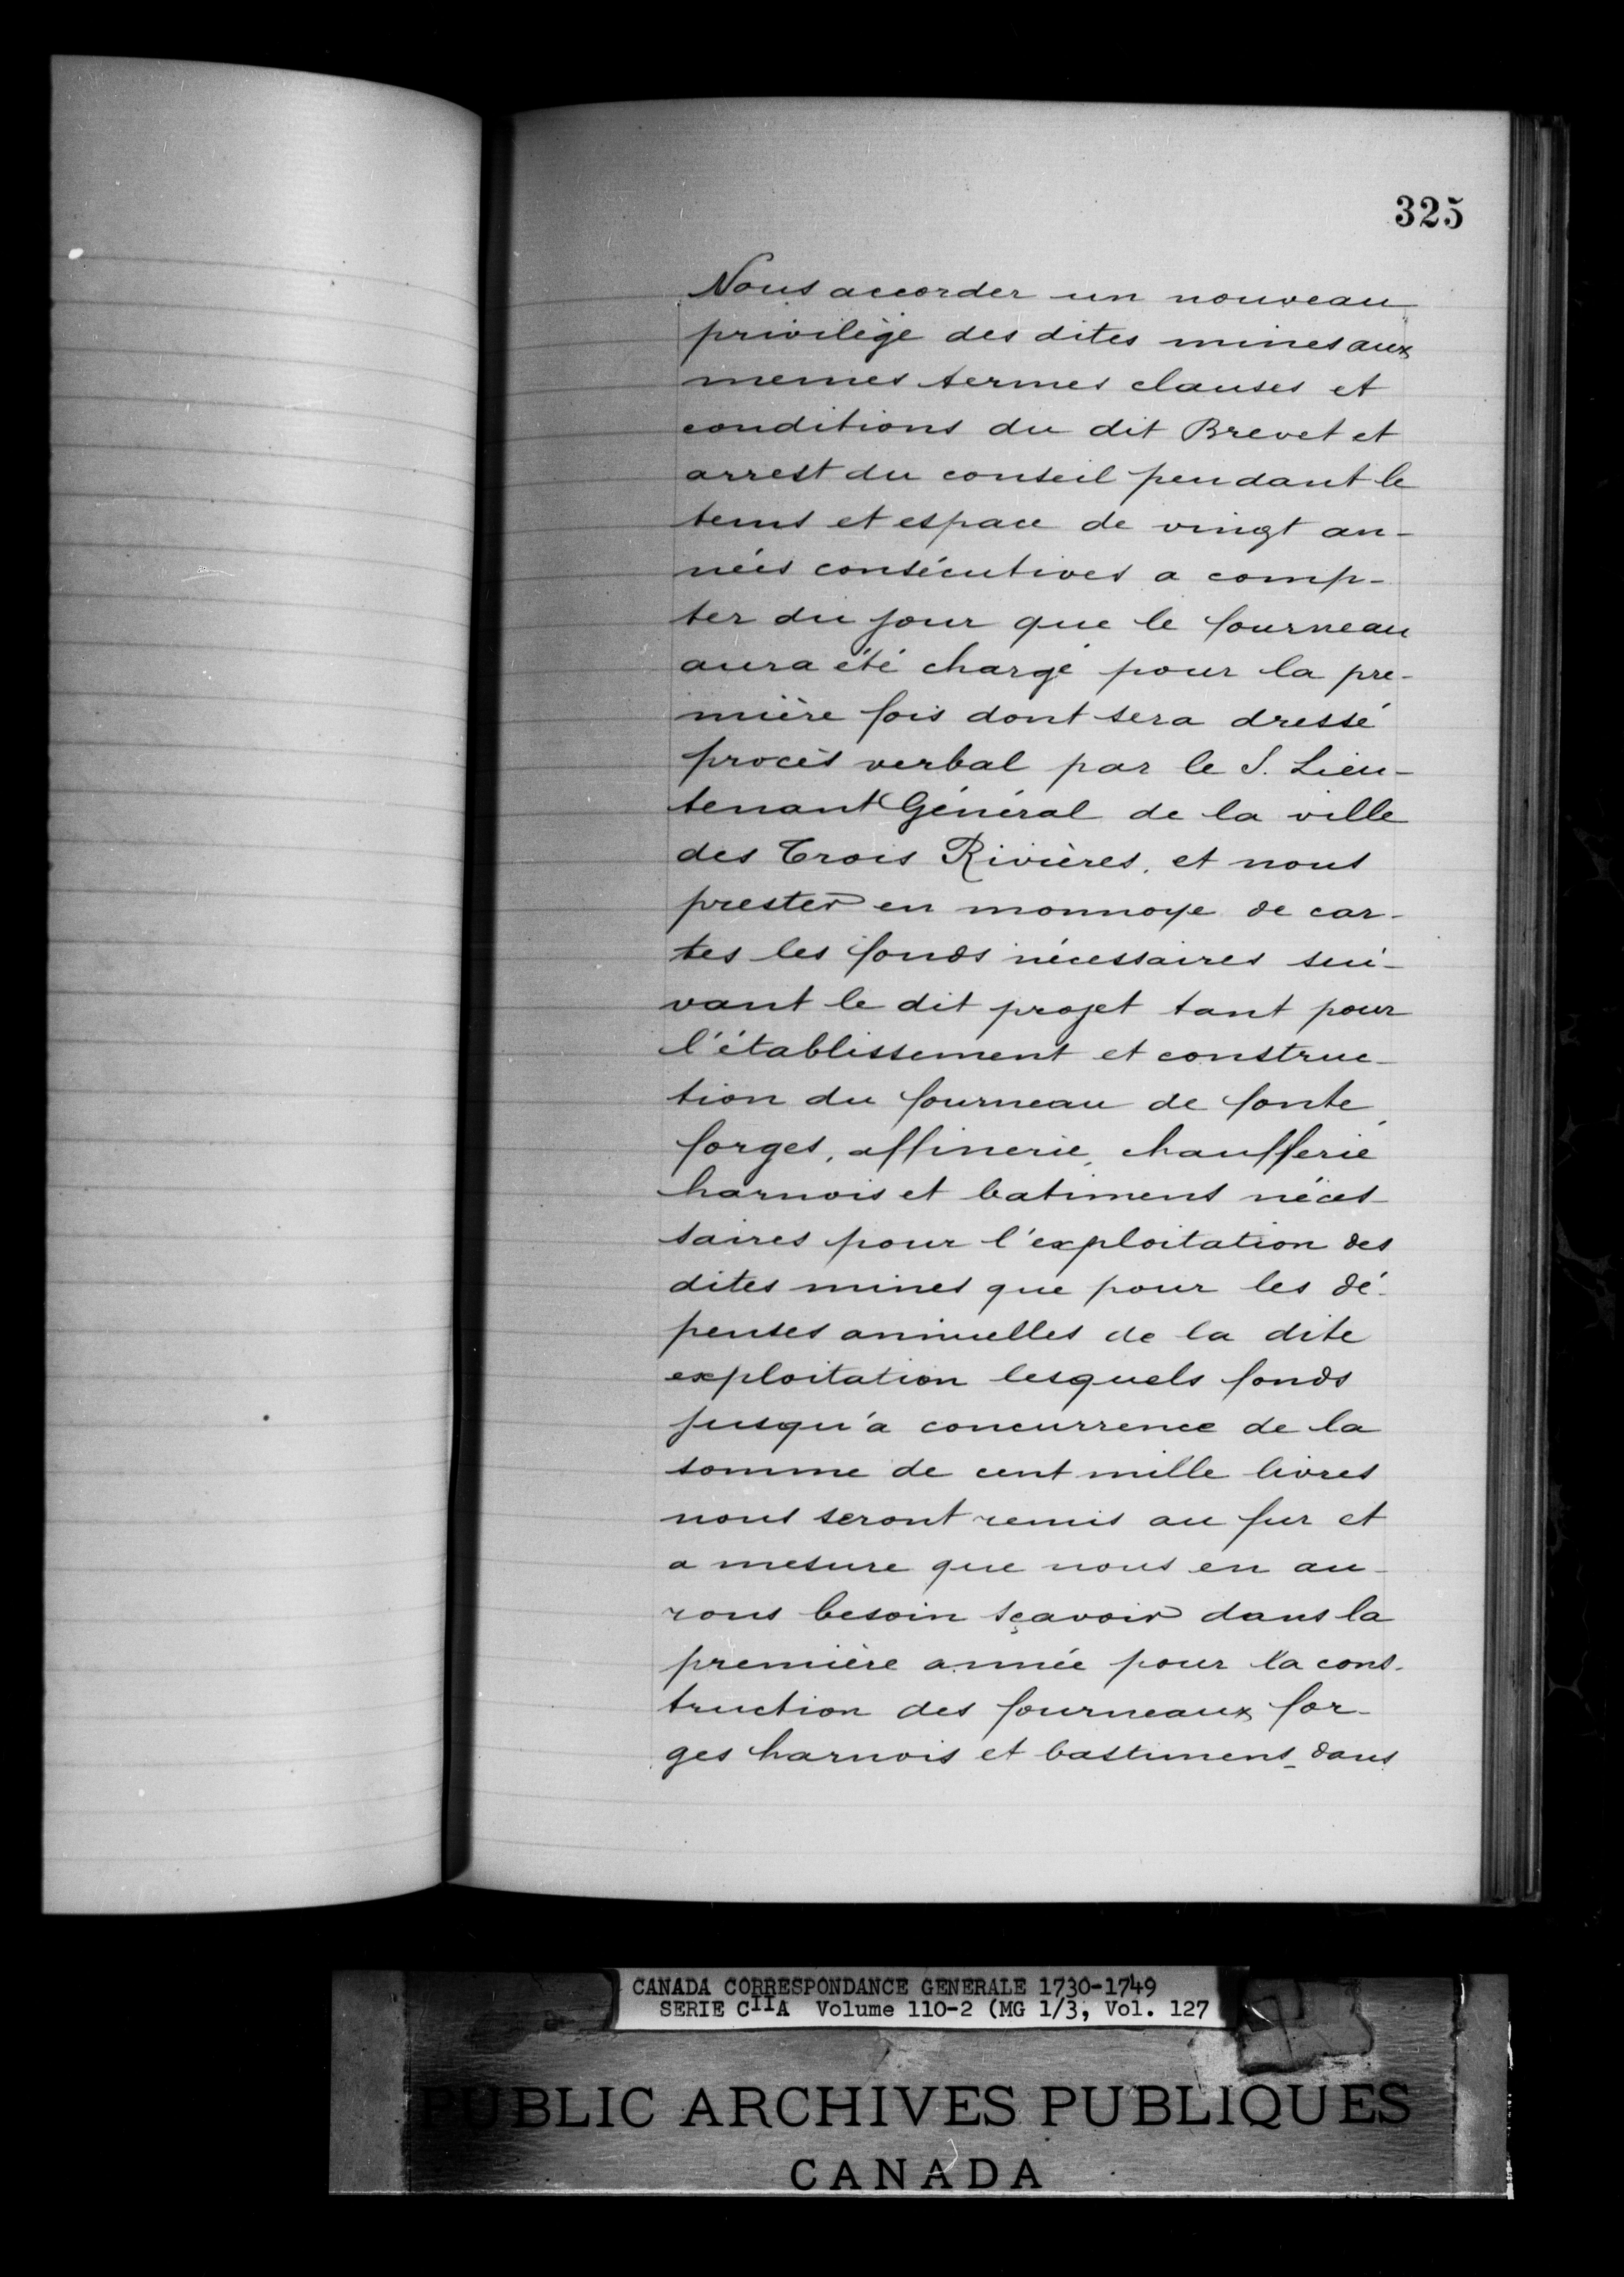 325
Nous accorder un nouveau
privilège des dites mines aux
memes termes clauses et
conditions du dit Brevet et
arrest du conseil pendant le
tems et espace de vingt an-
nées consécutives a comp-
ter du jour que le fourneau
aura été chargé pour la pre-
mière fois dont sera dressé
procès verbal par le S. Lieu-
tenant Général de la ville
des Trois Rivières, et nous
prester en monnoye de car-
tes les fonds nécessaires sui-
vant le dit projet tant pour
l'établissement et construc-
tion du fourneau de fonte,
forges, affinerie, chaufferie
harnois et batiments néces-
saires pour l'exploitation des
dites mines que pour les dé-
penses annuelles de la dite
exploitation lesquels fonds
jusqu'a concurrence de la
somme de cent mille livres
nous seront remis au fur et
a mesure que nous en au-
rons besoin sçavoir dans la
première année pour la cons-
truction des fourneaux for-
ges harnois et bastimens dans
CANADA CORRESPONDANCE GENERALE 1730-1749
SERIE CIIA Volume 110-2 (MG 1/3, Vol. 127
PUBLIC ARCHIVES PUBLIQUES
CANADA